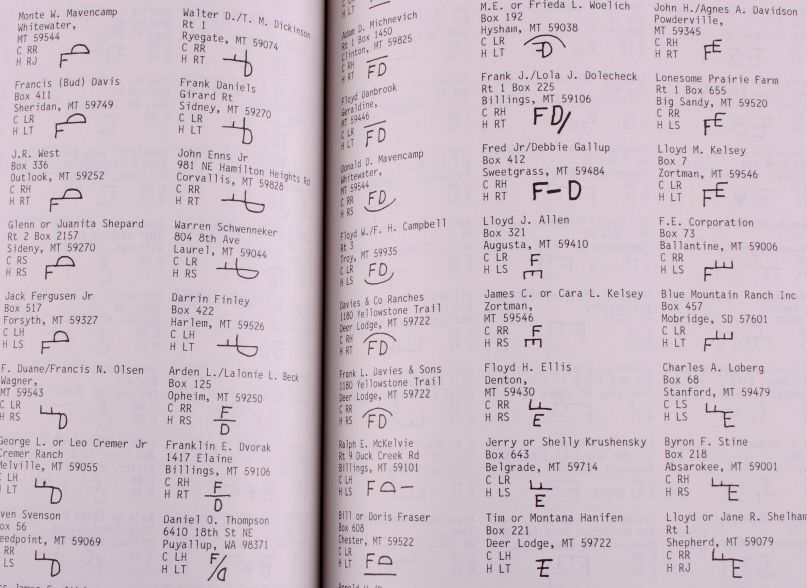 Monte W. Mavencamp
Whitewater,
MT 59544
C RR
H RJ
Francis (Bud) Davis
Box 411
Sheridan, MT 59749
C LR
H LT
J.R. West
Box 336
Outlook, MT 59252
C RH
H RT
Glenn or Juanita Shepard
Rt 2 Box 2157
Sideny, MT 59270
C RS
H RS
Jack Fergusen Jr
Box 517
Forsyth, MT 59327
C LH
H LS
F. Duane/Francis N. Olsen
Wagner,
MT 59543
C LR
H RS
George L. or Leo Cremer Jr
Cremer Ranch
Melville, MT 59055
C LH
H LT
Svenson
Box 56
MT 59069
RR
LS
Walter D./T. M. Dickinson
Rt 1
Ryegate, MT 59074
C RR
H RT
Frank Daniels
Girard Rt
Sidney, MT 59270
C LR
H LT
John Enns Jr
981 NE Hamilton Heights Rd
Corvallis, MT 59828
C RR
H RT
Warren Schwenneker
804 8th Ave
Laurel, MT 59044
C RS
H RS
Darrin Finley
Box 422
Harlem, MT 59526
C LH
H LT
Arden L./Lalonie L. Beck
Box 125
Opheim, MT 59250
C RR
H RS
F
D
Franklin E. Dvorak
1417 Elaine
Billings, MT 59106
C RH
H RT
F
D
Daniel O. Thompson
6410 18th St NE
Puyallup, WA 98371
C LH
H LT
F/D
H LT
Adam D. Michnevich
Rt 1 Box 1450
Clinton, MT 59825
C RH
H RT
FD
Floyd Uanbrook
Geraldine,
MT 59446
C LR
H LT
FD
Donald D. Mavencamp
Whitewater,
MT 59544
C RR
H RS
FD
Floyd W./F. H. Campbell
Rt 3
Troy, MT 59935
C LR
H LS
FD
Davies & Co Ranches
1180 Yellowstone Trail
Deer Lodge, MT 59722
C RH
H RT
FD
Frank L. Davies & Sons
1180 Yellowstone Trail
Deer Lodge, MT 59722
C RR
H RS
FD
Ralph E. McKelvie
Rt 9 Duck Creek Rd
Billings, MT 59101
C LH
H LS
Bill or Doris Fraser
Box 608
Chester, MT 59522
C LR
H LT
M.E. or Frieda L. Woelich
Box 192
Hysham, MT 59038
C LR
H LT
Frank J./Lola J. Dolecheck
Rt 1 Box 225
Billings, MT 59106
C RH
H RT
FD/
Fred Jr/Debbie Gallup
Box 412
Sweetgrass, MT 59484
C RH
H RT
F-D
Lloyd J. Allen
Box 321
Augusta, MT 59410
C LR
H LS
F
James C. or Cara L. Kelsey
Zortman,
MT 59546
C RR
H RS
F
Floyd H. Ellis
Denton,
MT 59430
C RR
H RS
E
Jerry or Shelly Krushensky
Box 643
Belgrade, MT 59714
C LR
H LS
E
Tim or Montana Hanifen
Box 221
Deer Lodge, MT 59722
C LH
H LT
John H./Agnes A. Davidson
Powderville,
MT 59345
C RH
H RT
FE
Lonesome Prairie Farm
Rt 1 Box 655
Big Sandy, MT 59520
C RR
H LS
FE
Lloyd M. Kelsey
Box 7
Zortman, MT 59546
C LR
H LT
FE
F.E. Corporation
Box 73
Ballantine, MT 59006
C RR
H LS
Blue Mountain Ranch Inc
Box 457
Mobridge, SD 57601
C LR
H LT
Charles A. Loberg
Box 68
Stanford, MT 59479
C LS
H LS
Byron F. Stine
Box 218
Absarokee, MT 59001
C RH
H RS
Lloyd or Jane R. Shelham
Rt 1
Shepherd, MT 59079
C RR
H RJ